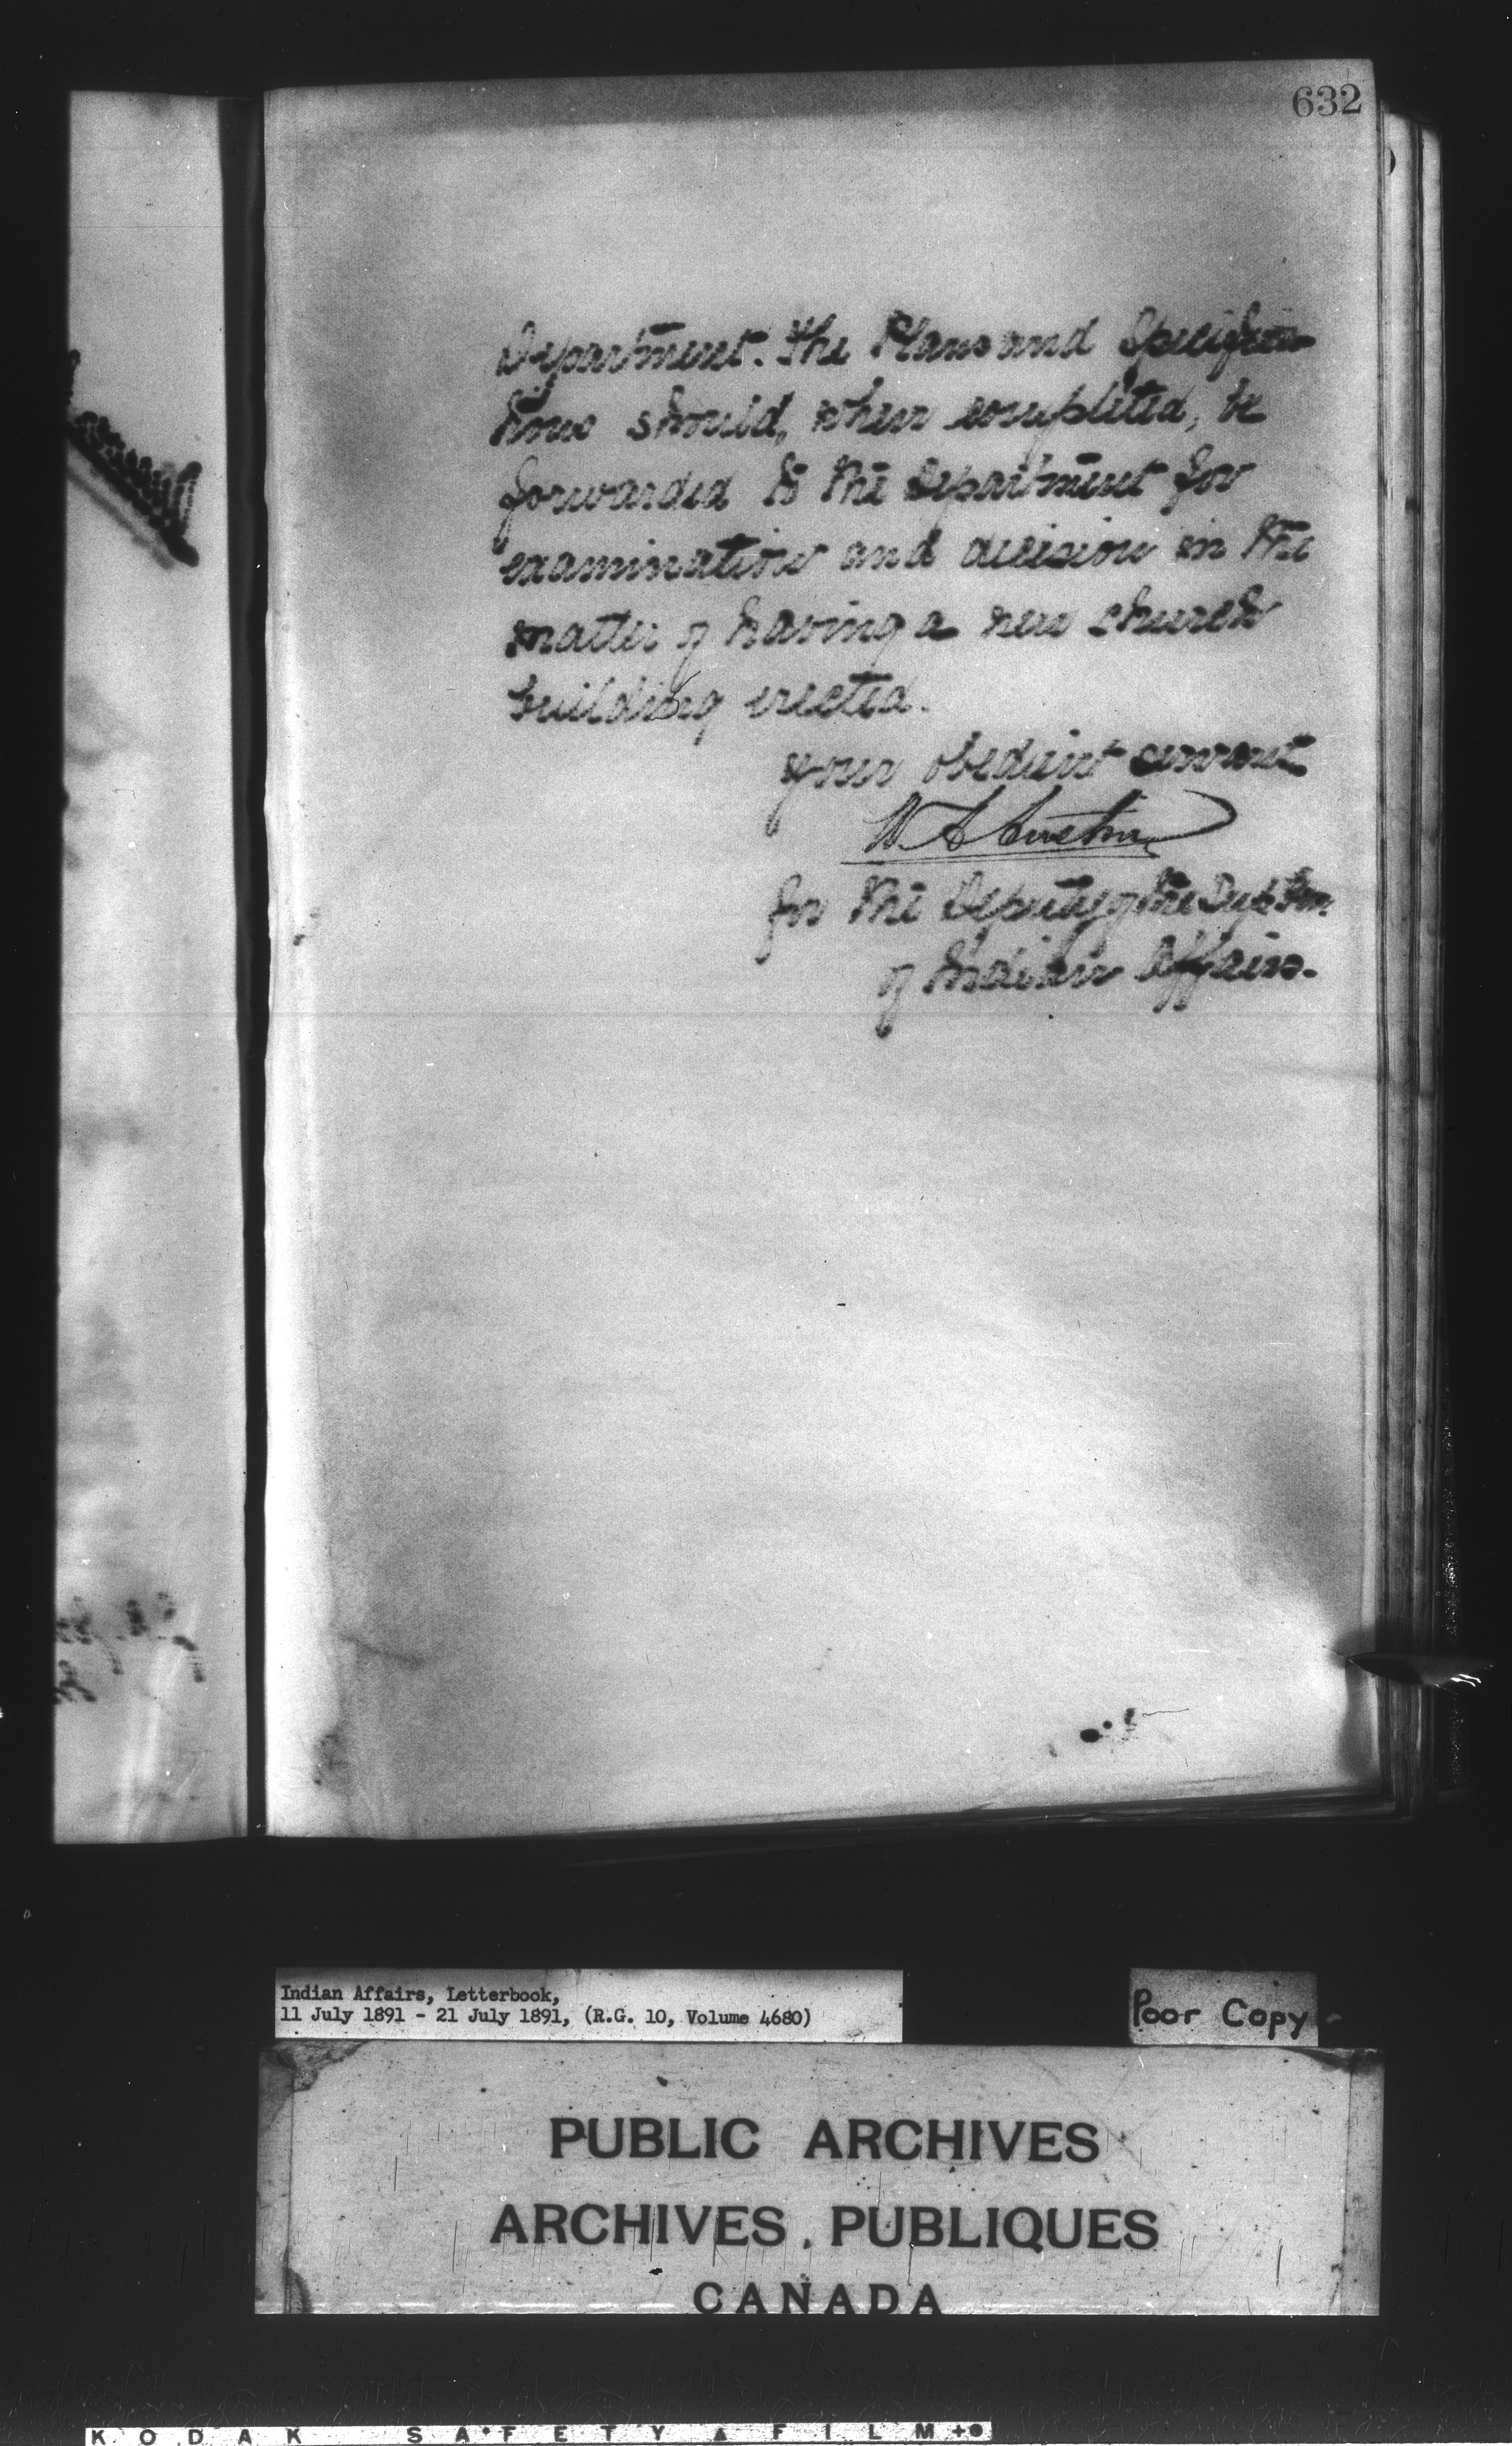 632
Department. The Plans and Specifica-
tions should, when completed, be
forwarded to the Department for
examination and decision in the
matter of having a new church
building erected.
Your obedient servant
W. A. Austin
for the Deputy of the Supt Gen.
of Indian Affairs.
Indian Affairs, Letterbook,
11 July 1891 - 21 July 1891, (R.G. 10, Volume 4680)
Poor Copy
PUBLIC ARCHIVES
ARCHIVES PUBLIQUES
CANADA
KODAK SAFETY FILM